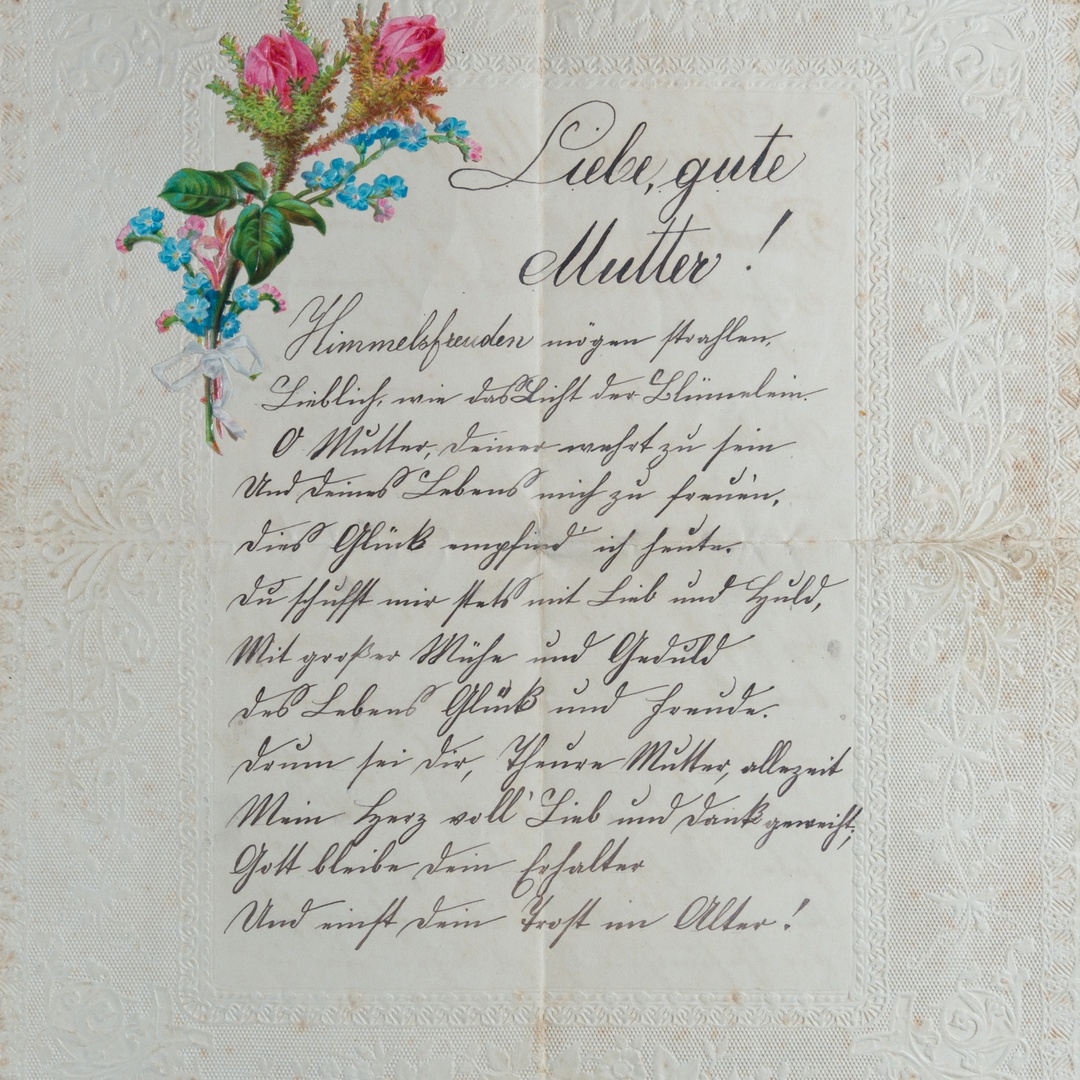 Liebe, gute
Mutter!
Himmelsfreuden mögen strahlen,
Lieblich, wie das Licht der Blümelein.
O Mutter, deiner wehrt zu sein
Und deines Lebens mich zu freuen,
dies Glück empfind ich heute.
Du schufst mir stets mit Lieb und Huld,
Mit großer Mühe und Geduld
des Lebens Glück und Freude.
Drum sei dir, Theure Mutter, allezeit
Mein Herz voll Lieb und Dank geweiht;
Gott bleibe dein Erhalter
Und einst dein Trost im Alter!